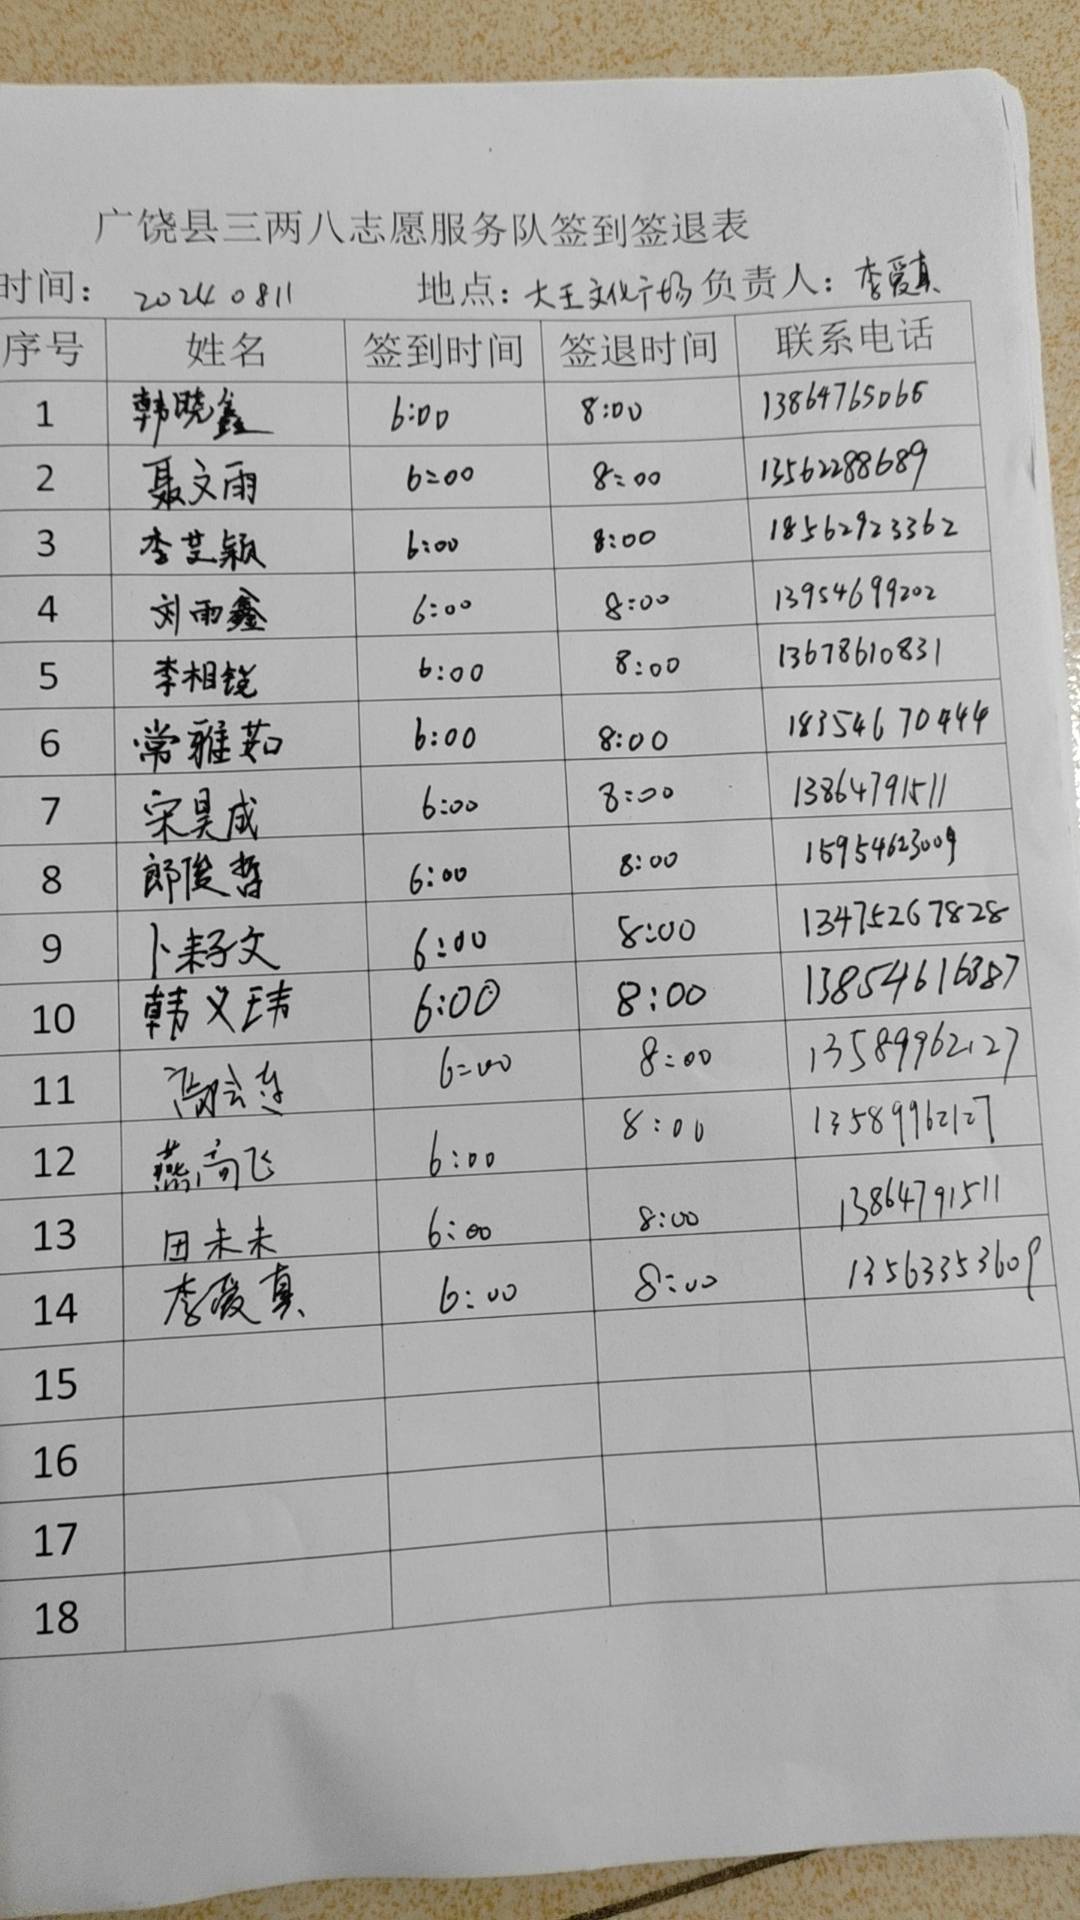 广饶县三两八志愿服务队签到签退表
时间：20240811 地点：大王文化广场 负责人：李爱真
序号 姓名 签到时间 签退时间 联系电话
1 韩晓鑫 6:00 8:00 13864765065
2 聂文雨 6:00 8:00 13562288689
3 李艾颖 6:00 8:00 18562923362
4 刘雨鑫 6:00 8:00 13954699202
5 李相锐 6:00 8:00 13678610831
6 常雅茹 6:00 8:00 18354670444
7 宋昊成 6:00 8:00 13864791511
8 郎俊哲 6:00 8:00 15954623009
9 卜耔文 6:00 8:00 13475267828
10 韩义玮 6:00 8:00 13854616387
11 6:00 8:00 13589962127
12 燕高飞 6:00 8:00 13589962127
13 田未未 6:00 8:00 13864791511
14 李爱真 6:00 8:00 13563353609
15
16
17
18